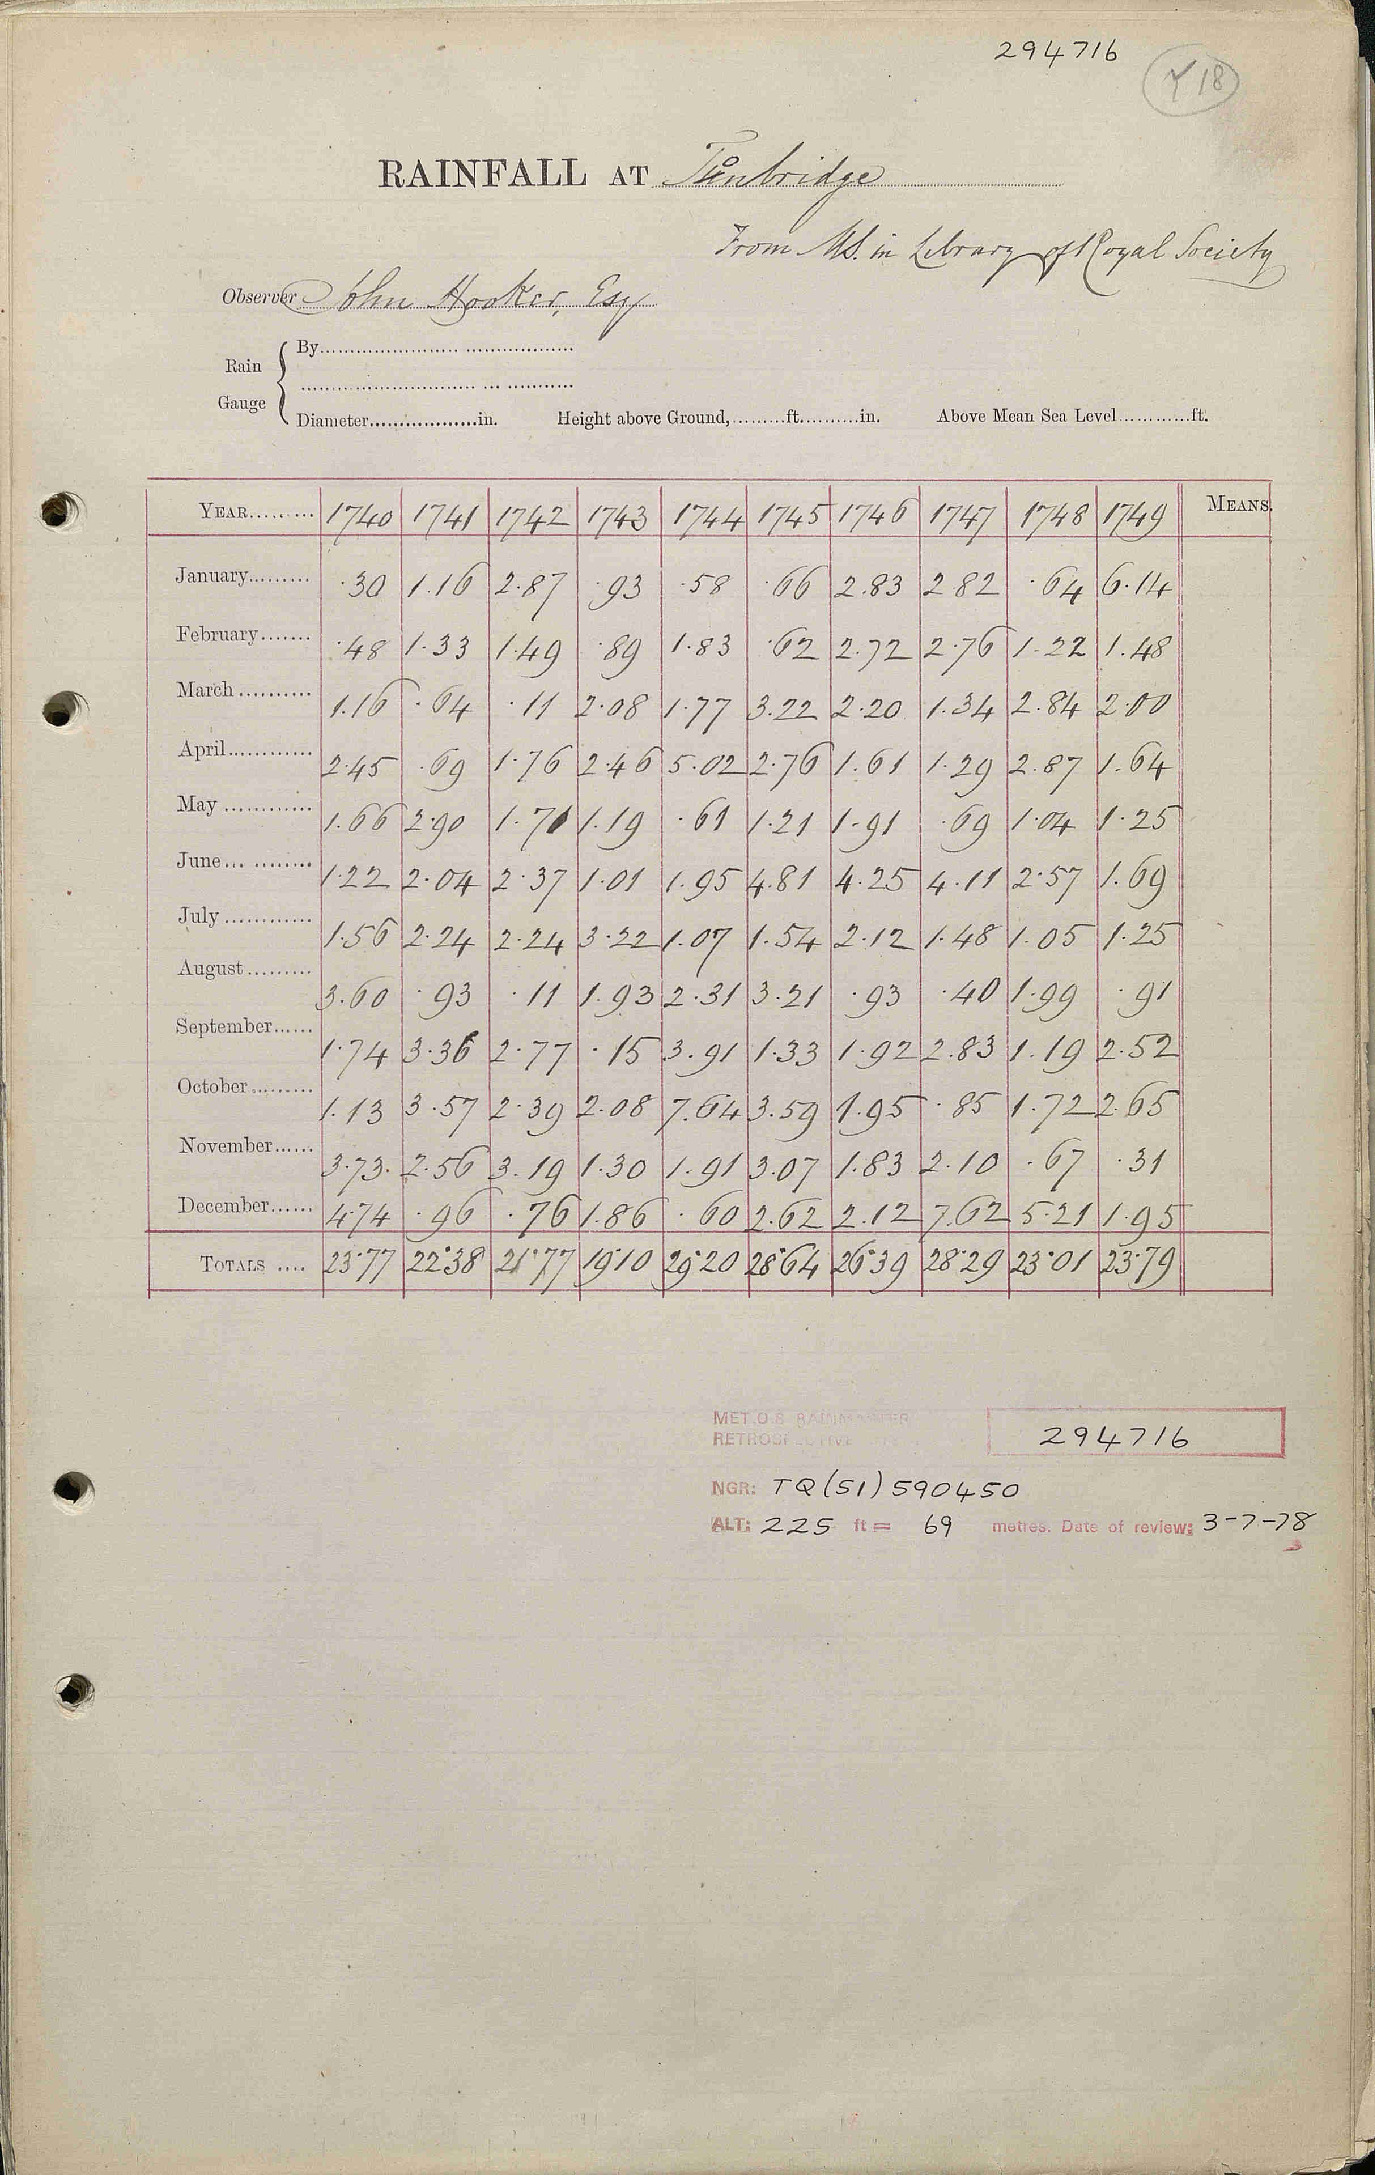 294716
18
RAINFALL AT Tonbridge
From MS. in Library of Royal Society
Observer John Hooker, Esq
Rain Gauge { By
Diameter in. Height above Ground, ft. in. Above Mean Sea Level ft.
YEAR 1740 1741 1742 1743 1744 1745 1746 1747 1748 1749 MEANS.
January .30 1.16 2.87 .93 .58 .66 2.83 2.82 .64 6.14
February .48 1.33 1.49 .89 1.83 .62 2.72 2.76 1.22 1.48
March 1.16 .64 .11 2.08 1.77 3.22 2.20 1.34 2.84 2.00
April 2.45 .69 1.76 2.46 5.02 2.76 1.61 1.29 2.87 1.64
May 1.66 2.90 1.71 1.19 .61 1.21 1.91 .69 1.04 1.25
June 1.22 2.04 2.37 1.01 1.95 4.81 4.25 4.11 2.57 1.69
July 1.56 2.24 2.24 3.22 1.07 1.54 2.12 1.48 1.05 1.25
August 3.60 .93 .11 1.93 2.31 3.21 .93 .40 1.99 .91
September 1.74 3.36 2.77 .15 3.91 1.33 1.92 2.83 1.19 2.52
October 1.13 3.57 2.39 2.08 7.64 3.59 1.95 .85 1.72 2.65
November 3.73 2.56 3.19 1.30 1.91 3.07 1.83 2.10 .67 .31
December 4.74 .96 .76 1.86 .60 2.62 2.12 7.62 5.21 1.95
TOTALS 23.77 22.38 21.77 19.10 29.20 28.64 26.39 28.29 23.01 23.79
MET.O.8 RAINMASTER
RETROSPECTIVE 294716
NGR: TQ(51)590450
ALT: 225 ft = 69 metres. Date of review: 3-7-78